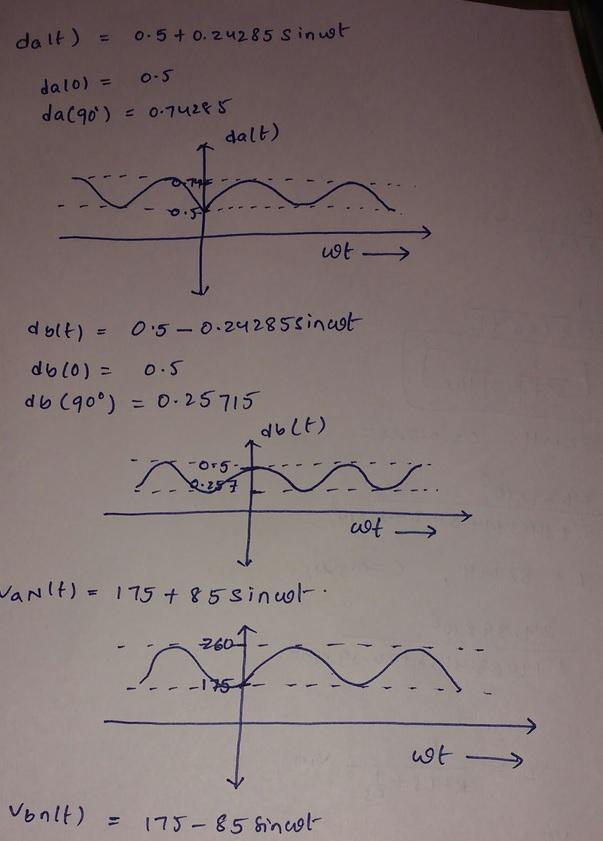 da(t) = 0.5 + 0.24285 sinωt
da(0) = 0.5
da(90°) = 0.74285
da(t)
0.74
0.5
ωt
db(t) = 0.5 - 0.24285 sinωt
db(0) = 0.5
db(90°) = 0.25715
db(t)
0.5
0.257
ωt
VaN(t) = 175 + 85 sinωt.
260
175
ωt
Vbn(t) = 175 - 85 sinωt